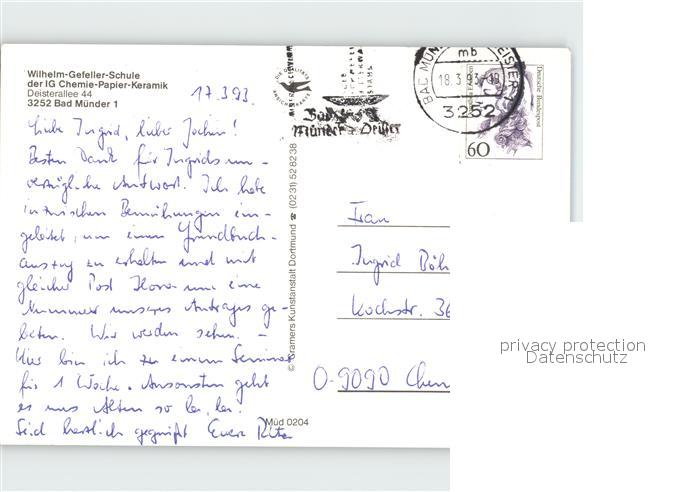 Wilhelm-Gefeller-Schule
der IG Chemie-Papier-Keramik
Deisterallee 44
3252 Bad Münder 1
17.3.93
Liebe Ingrid, lieber Jochen!
Besten Dank für Ingrids un-
verzügliche Antwort. Ich habe
inzwischen Bemühungen ein-
geleitet, um einen Grundbuch-
auszug zu erhalten und mit
gleicher Post Ilona um eine
Nummer unseres Antrages ge-
beten. Wir werden sehen. –
Hier bin ich zu einem Seminar
für 1 Woche. Ansonsten geht
es uns Alten so la, la.
Seid herzlich gegrüßt Eure Rita
Müd 0204
© Cramers Kunstanstalt Dortmund ☎ (0231) 528238
Bad
Münder Deister
BAD MÜN DEISTER
mb
18.3.93-18
3252
Deutsche Bundespost
60
Frau
Ingrid Böh
Kochstr. 36
O-9090 Chem
privacy protection
Datenschutz